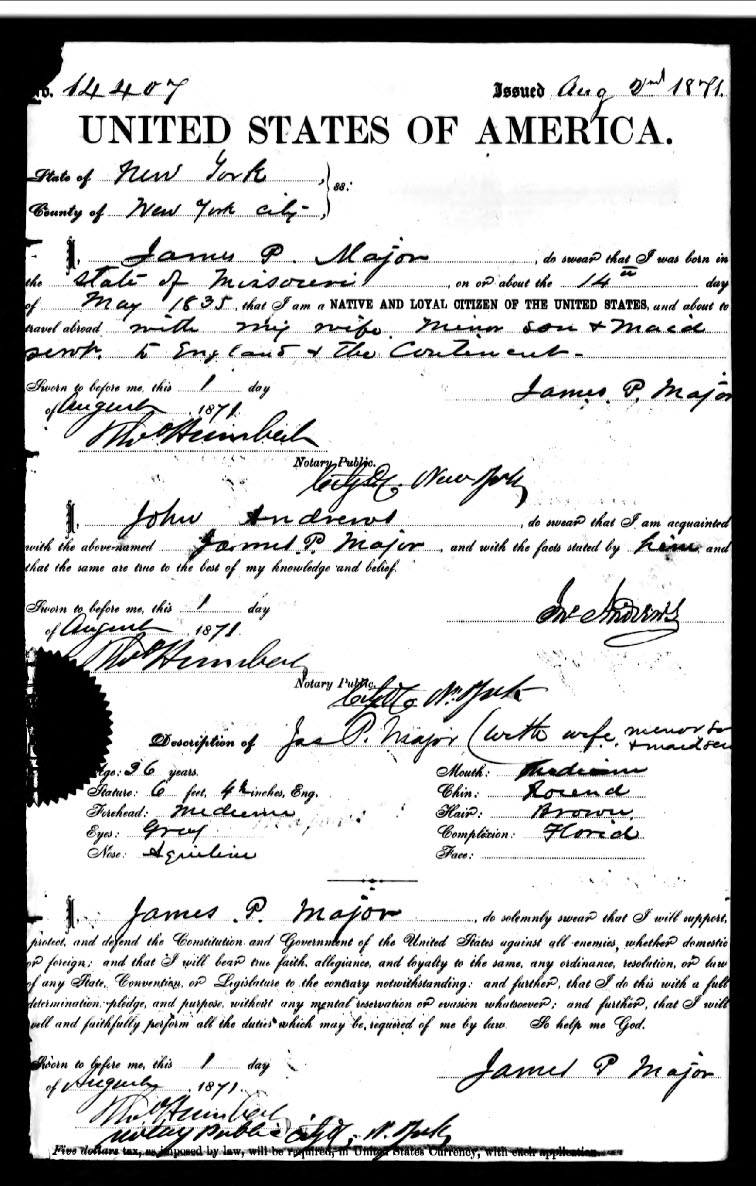 No. 14407 Issued Aug 2nd 1871.
UNITED STATES OF AMERICA.
State of New York
County of New York City } ss:
I, James P. Major, do swear that I was born in
the State of Missouri, on or about the 14th day
of May 1835, that I am a NATIVE AND LOYAL CITIZEN OF THE UNITED STATES, and about to
travel abroad with my wife. Minor son & Maid
servt. to England & the Continent -
Sworn to before me, this 1 day
of August 1871.
James P. Major
Notary Public.
City & Co. New York
I, John Andrews, do swear that I am acquainted
with the above-named James P. Major, and with the facts stated by him and
that the same are true to the best of my knowledge and belief.
Sworn to before me, this 1 day
of August 1871
Jno Andrews
Notary Public.
City & Co N. York
Description of Jas P. Major (with wife, minor so
& maid ser
Age: 36 years. Mouth: Medium
Stature: 6 feet, 4½ inches, Eng. Chin: Round
Forehead: Medium Hair: Brown
Eyes: Grey Complexion: Florid
Nose: Aquiline Face:
I, James P. Major, do solemnly swear that I will support,
protect, and defend the Constitution and Government of the United States against all enemies, whether domestic
or foreign; and that I will bear true faith, allegiance, and loyalty to the same, any ordinance, resolution, or law
of any State, Convention, or Legislature to the contrary notwithstanding: and further, that I do this with a full
determination, pledge, and purpose, without any mental reservation or evasion whatsoever; and further, that I will
well and faithfully perform all the duties which may be required of me by law. So help me God.
Sworn to before me, this 1 day
of August 1871.
James P Major
Notary Public City & Co, N. York
Five dollars tax, as imposed by law, will be required, in United States Currency, with each application.